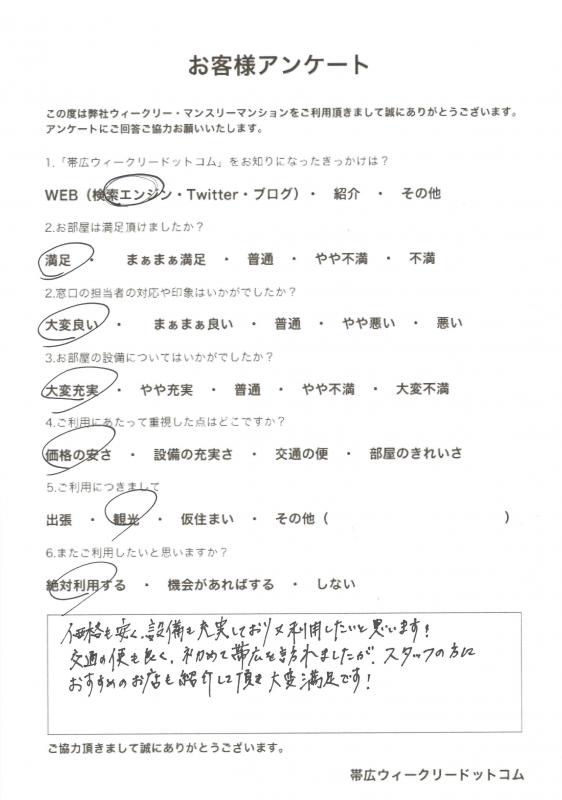 お客様アンケート
この度は弊社ウィークリー・マンスリーマンションをご利用頂きまして誠にありがとうございます。
アンケートにご回答ご協力お願いいたします。
1.「帯広ウィークリードットコム」をお知りになったきっかけは？
WEB（検索エンジン・Twitter・ブログ）・ 紹介 ・ その他
2.お部屋は満足頂けましたか？
満足 ・ まぁまぁ満足 ・ 普通 ・ やや不満 ・ 不満
2.窓口の担当者の対応や印象はいかがでしたか？
大変良い ・ まぁまぁ良い ・ 普通 ・ やや悪い ・ 悪い
3.お部屋の設備についてはいかがでしたか？
大変充実 ・ やや充実 ・ 普通 ・ やや不満 ・ 大変不満
4.ご利用にあたって重視した点はどこですか？
価格の安さ ・ 設備の充実さ ・ 交通の便 ・ 部屋のきれいさ
5.ご利用につきまして
出張 ・ 観光 ・ 仮住まい ・ その他（ ）
6.またご利用したいと思いますか？
絶対利用する ・ 機会があればする ・ しない
価格も安く、設備も充実しており又利用したいと思います！
交通の便も良く、初めて帯広を訪れましたが、スタッフの方に
おすすめのお店も紹介して頂き大変満足です！
ご協力頂きまして誠にありがとうございます。
帯広ウィークリードットコム